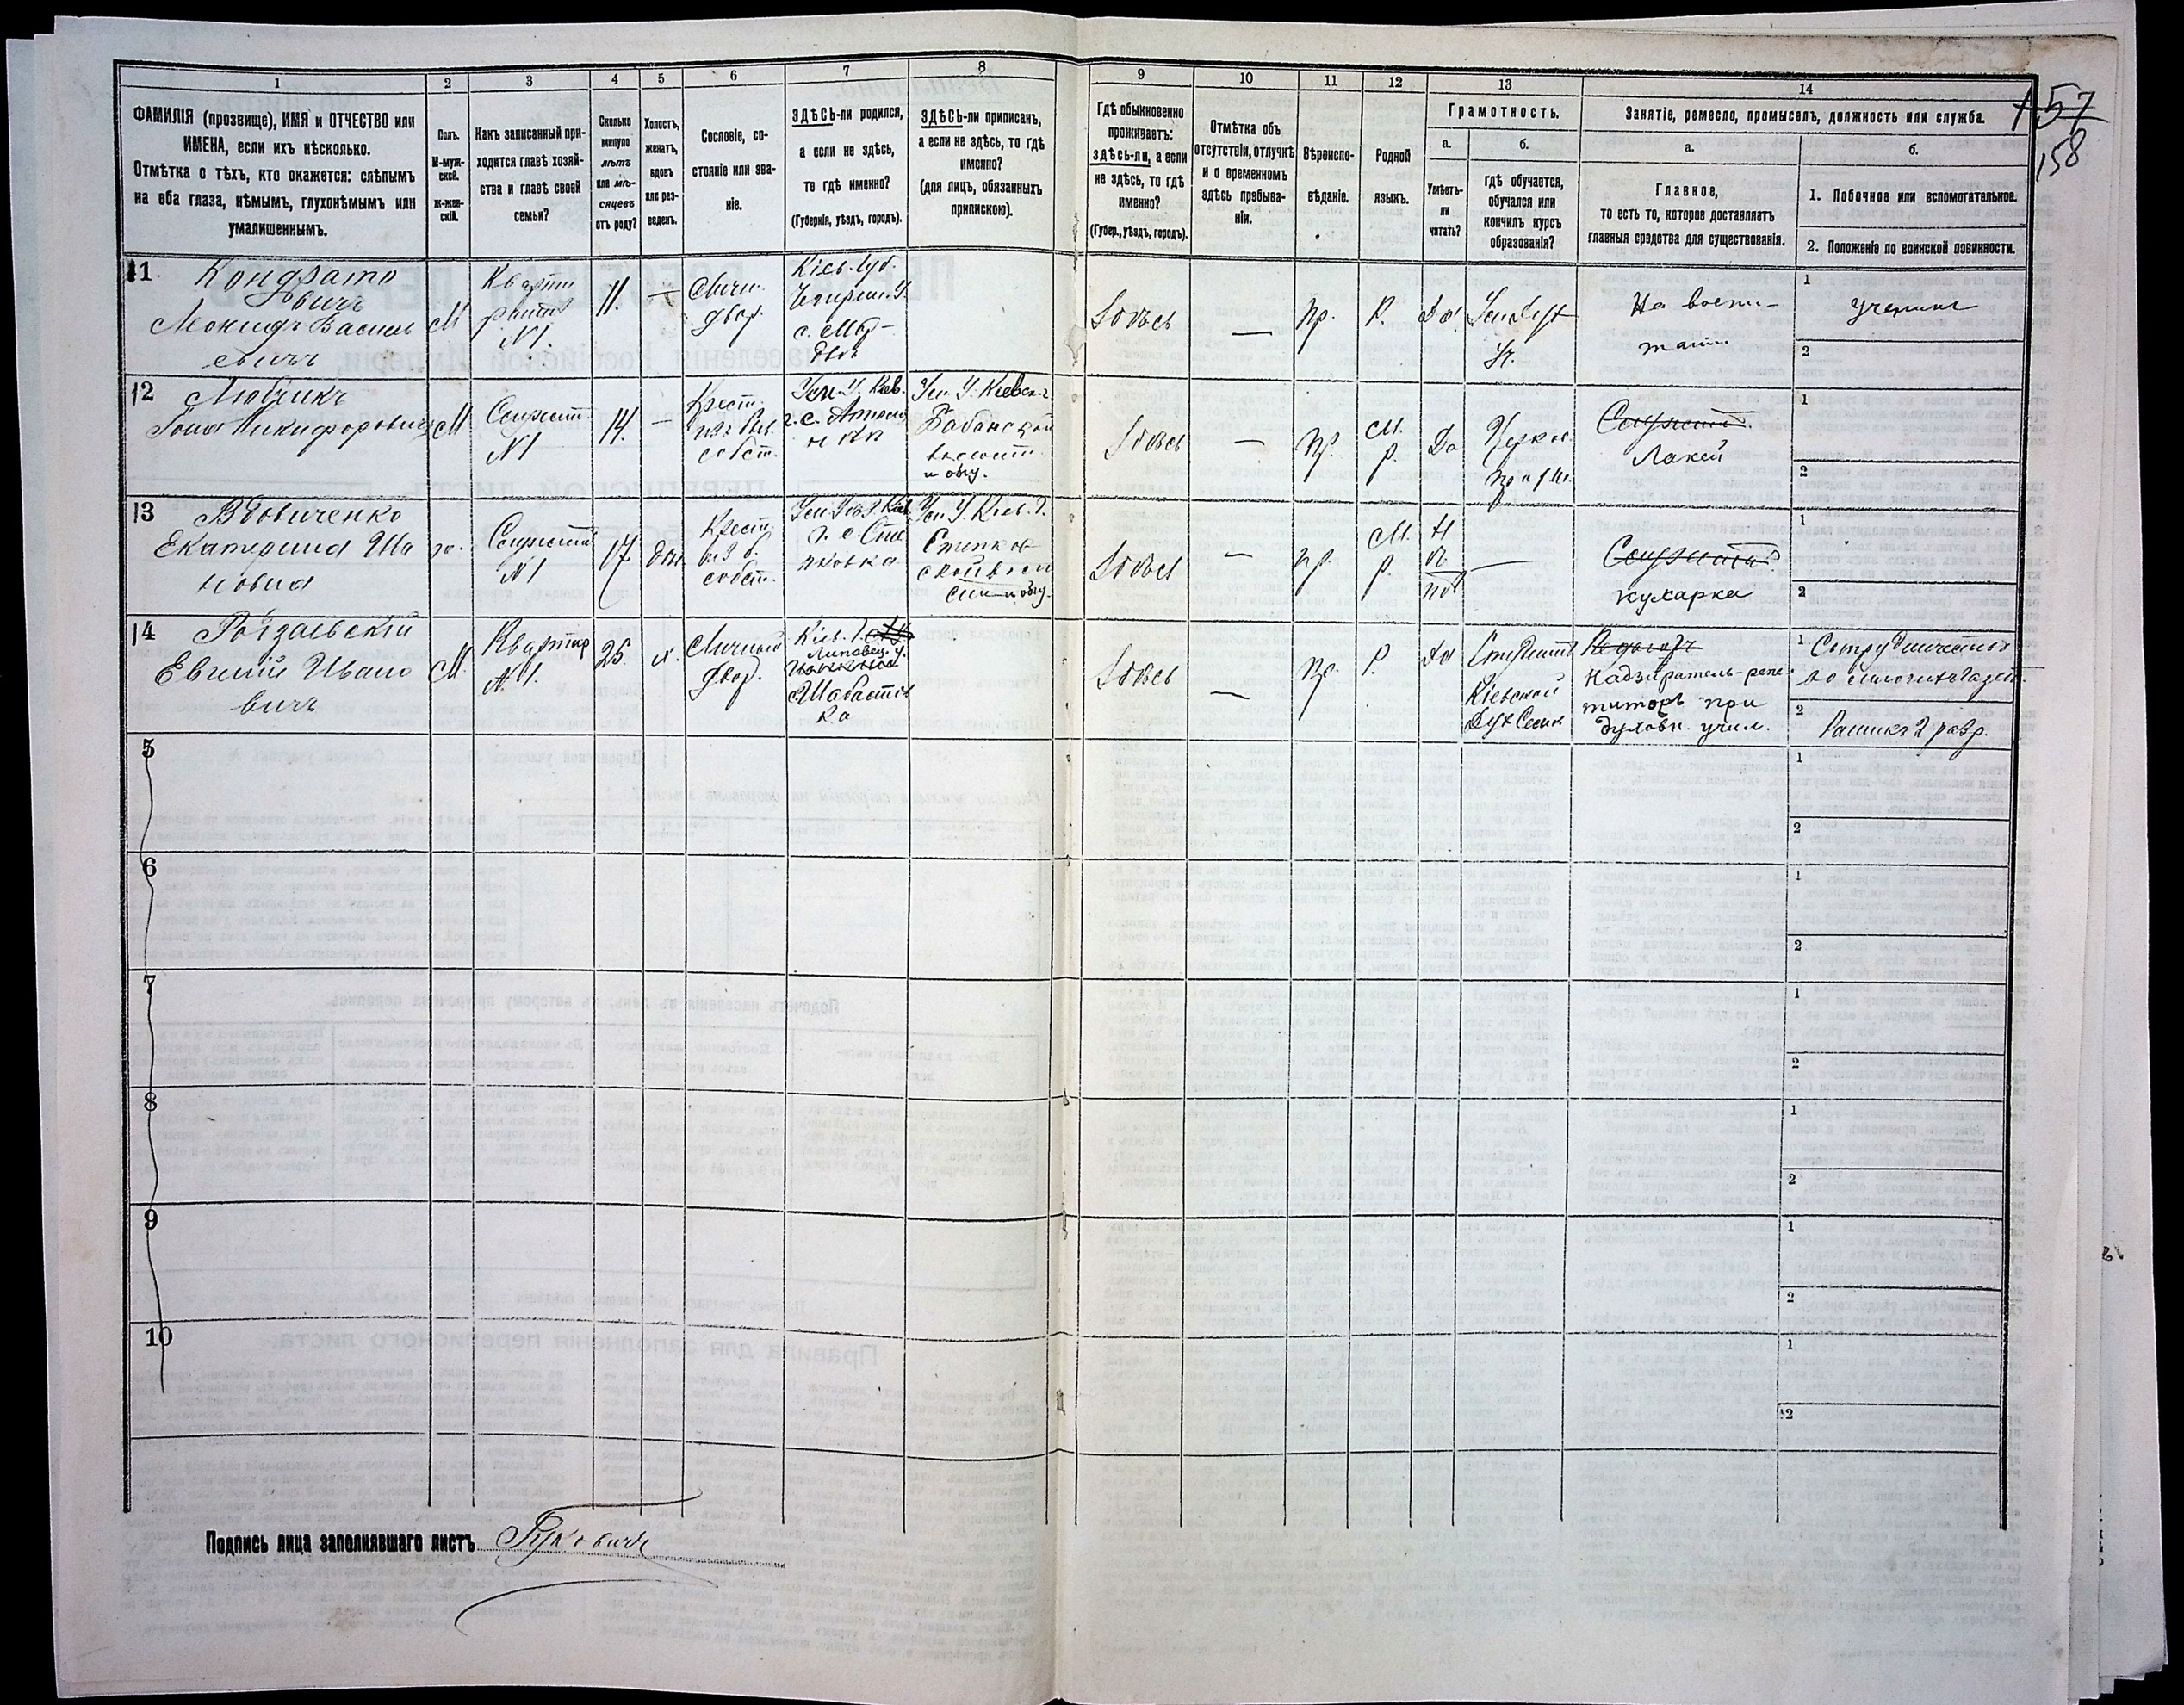 1
2
3
4
5
6
7
8
ФАМИЛІЯ (прозвище), ИМЯ и ОТЧЕСТВО или
ИМЕНА, если ихъ нѣсколько.
Отмѣтка о тѣхъ, кто окажется: слѣпымъ
на оба глаза, нѣмымъ, глухонѣмымъ или
умалишеннымъ.
Полъ.
М-муж-
ской.
Ж-жен-
скій.
Какъ записанный при-
ходится главѣ хозяй-
ства и главѣ своей
семьи?
Сколько
минуло
лѣтъ
или мѣ-
сяцевъ
отъ роду?
Холостъ,
женатъ,
вдовъ
или раз-
веденъ.
Сословіе, со-
стояніе или зва-
ніе.
ЗДѢСЬ-ли родился,
а если не здѣсь,
то гдѣ именно?
(Губернія, уѣздъ, городъ).
ЗДѢСЬ-ли приписанъ,
а если не здѣсь, то гдѣ
именно?
(для лицъ, обязанныхъ
припискою).
9
10
11
12
13
14
Гдѣ обыкновенно
проживаетъ:
здѣсь-ли, а если
не здѣсь, то гдѣ
именно?
(Губер., уѣздъ, городъ).
Отмѣтка объ
отсутствіи, отлучкѣ
и о временномъ
здѣсь пребыва-
ніи.
Вѣроиспо-
вѣданіе.
Родной
языкъ.
Грамотность.
а.
б.
Умѣетъ-
ли
читать?
гдѣ обучается,
обучался или
кончилъ курсъ
образованія?
Занятіе, ремесло, промыселъ, должность или служба.
а.
б.
Главное,
то есть то, которое доставляетъ
главныя средства для существованія.
1. Побочное или вспомогательное.
2. Положеніе по воинской повинности.
157
158
11
Кондрато
вичъ
Леонидъ Василь
евичъ
М
Кварти
рантъ
N1.
11.
—
Личн.
двор.
Кіев. Губ.
Чигирин. У.
с.
Здѣсь
—
Пр.
Р.
Да
На воспи-
таніи
1
ученикъ
2
12
Любчикъ
Іона Никифоровичъ
М
Служит.
N1
14.
—
Крест.
изъ быв.
собст.
Ум. У. Кіев.
г. с.
Ум. У. Кіевск. г.
Бабанской
волости
и общ.
Здѣсь
—
Пр.
М.
р.
Да
Церков.
Служит.
Лакей
1
2
13
Вдовиченко
Екатерина Ива
новна
ж.
Служит.
N1
17
дѣв.
Крест.
изъ б.
собст.
Г. с. Сте
пковка
Ум. У. Кіев. Г.
Степков
ской воло
сти и общ.
Здѣсь
—
пр.
М.
р.
Н
ѣ
тъ
—
Служит.
кухарка
1
2
14
Евгеній Ивано
вичъ
М.
Квартир
N1.
25.
х.
Личный
двор.
Кіев. Г.
Липовец. у.
с. Шабастов
ка
Здѣсь
—
Пр.
Р.
Да
Студентъ
Кіевской
Дух Семин
Педагогъ
Надзиратель-репе-
титоръ при
духовн. учил.
1
Сотрудничество
во многихъ газет.
2
Ратникъ 2 разр.
5
1
2
6
1
2
7
1
2
8
1
2
9
1
2
10
1
2
Подпись лица заполнявшаго листъ